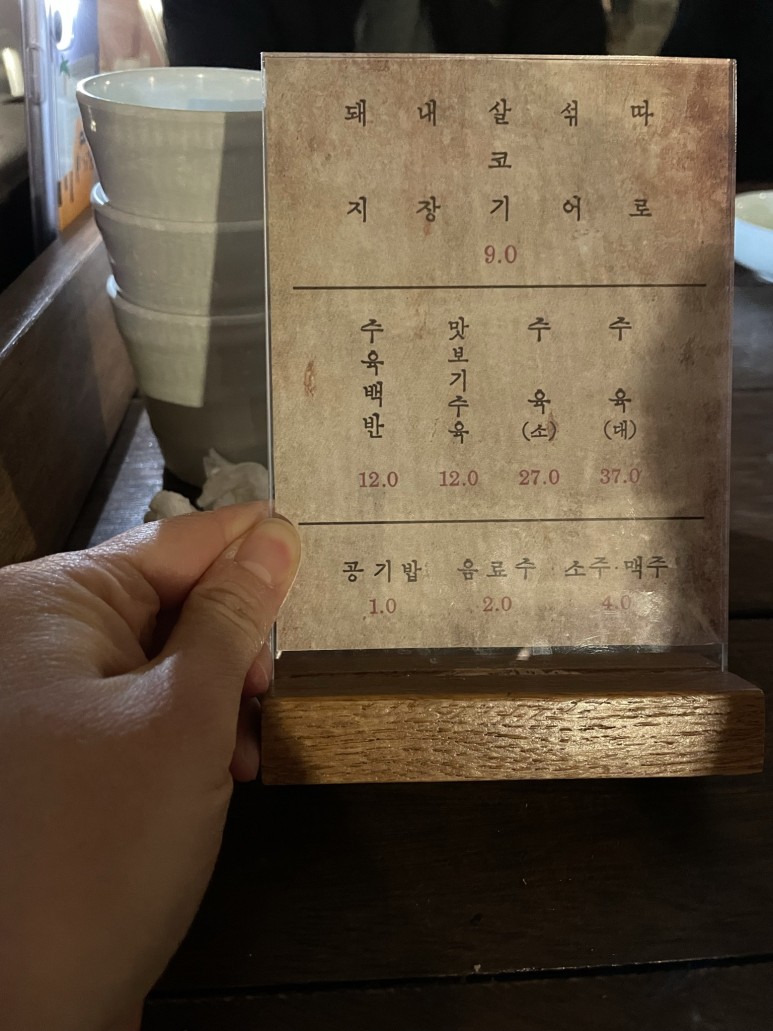 돼지
내장
살코기
섞어
따로
9.0
수육백반
맛보기수육
수육(소)
수육(대)
12.0 12.0 27.0 37.0
공기밥 음료수 소주·맥주
1.0 2.0 4.0